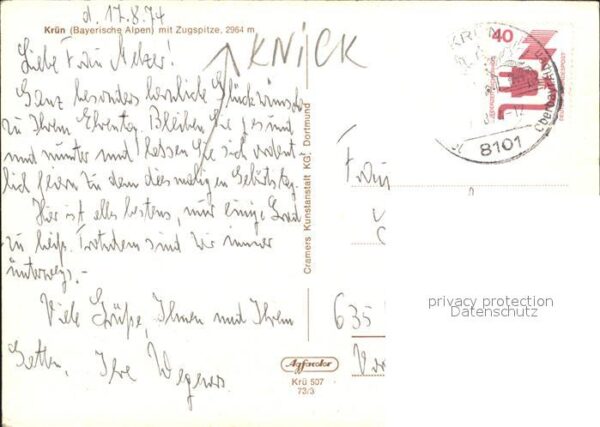 d. 17.8.74
Krün (Bayerische Alpen) mit Zugspitze, 2964 m
KNICK
Liebe Frau Melzer!
Ganz besonders herzliche Glückwünsche
zu Ihrem Ehrentag. Bleiben Sie gesund
und munter und lassen Sie sich ordent-
lich feiern zu dem diesmaligen Geburtstag.
Hier ist alles bestens, nur einige Grad
zu heiß. Trotzdem sind wir immer
unterwegs.-
Viele Grüße, Ihnen und Ihrem
Gatten, Ihre Wegeners
Cramers Kunstanstalt KG, Dortmund
Agfacolor
Krü 507
73/3
40
DEUTSCHE BUNDESPOST
KRÜN
8101
Oberbayern
Frau
635
privacy protection
Datenschutz